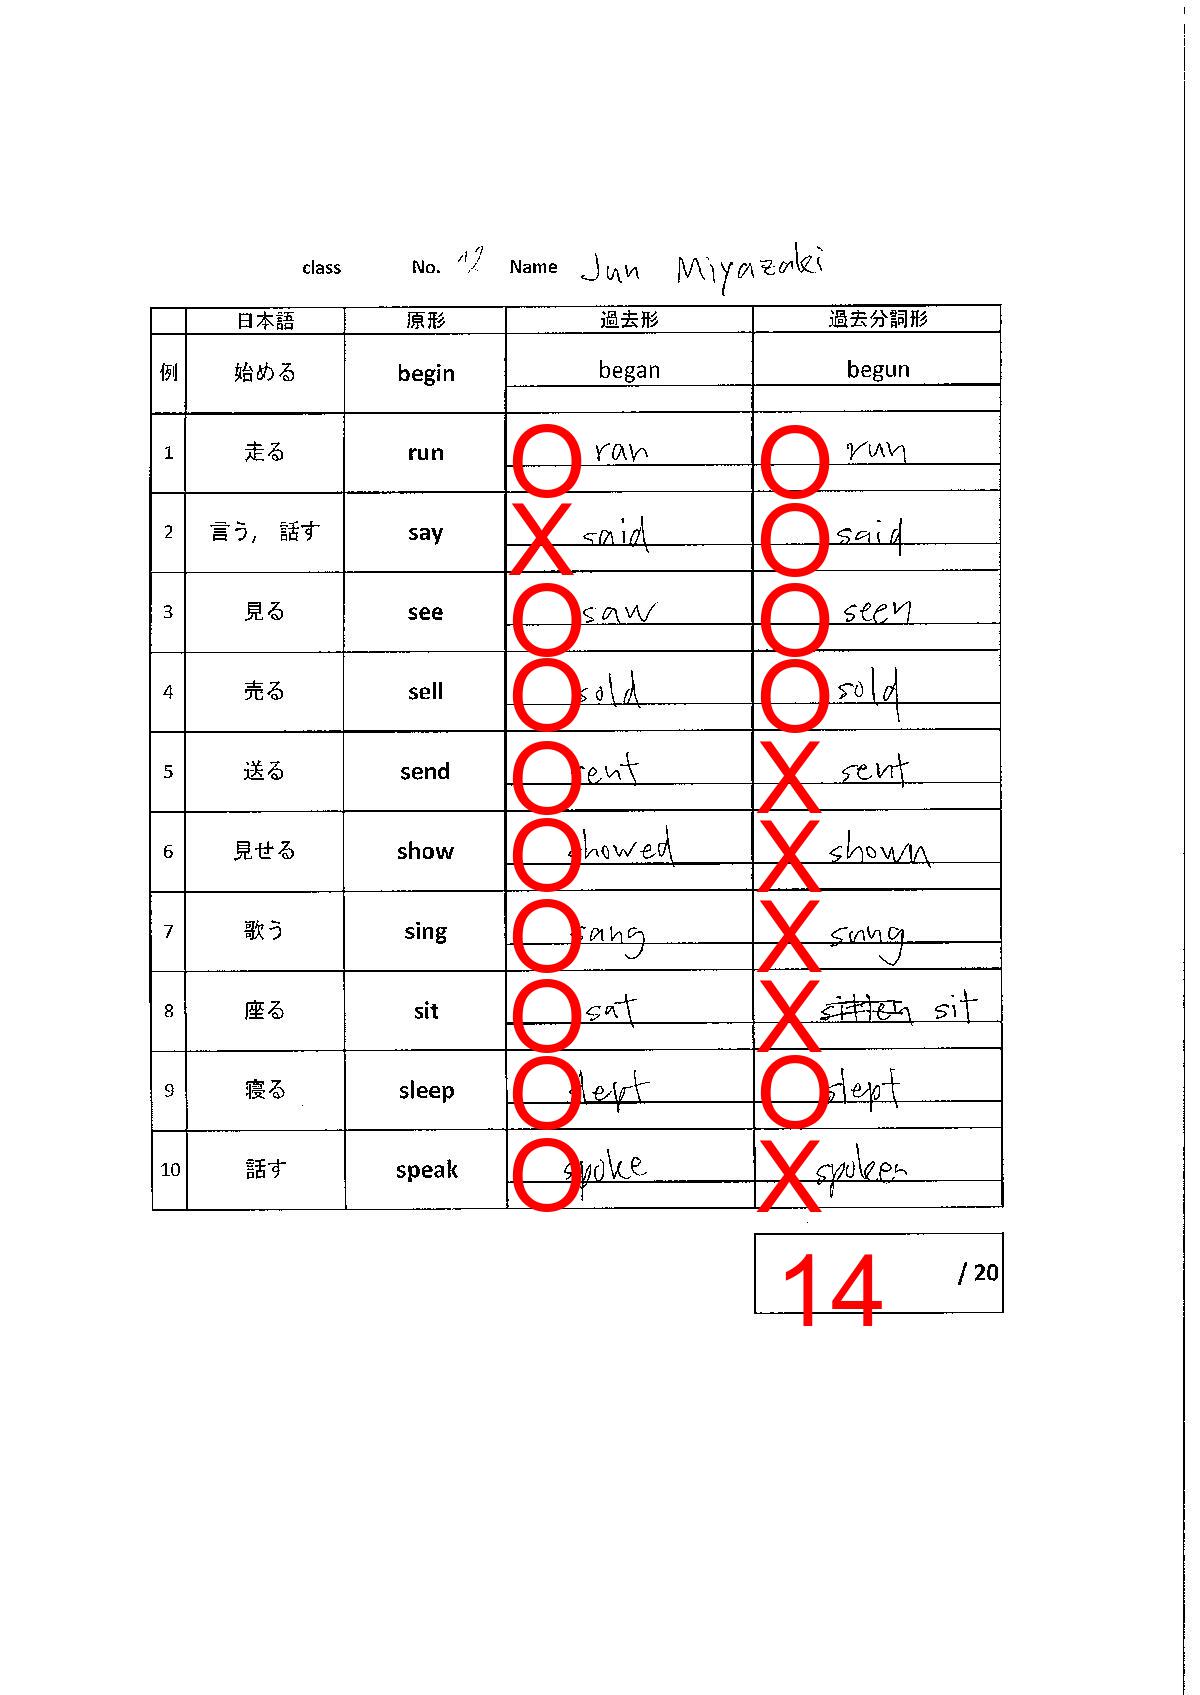 class No. 12 Name Jun Miyazaki
日本語 原形 過去形 過去分詞形
例 始める begin began begun
1 走る run O ran O run
2 言う, 話す say X said O said
3 見る see O saw O seen
4 売る sell O sold O sold
5 送る send O sent X sent
6 見せる show O showed X shown
7 歌う sing O sang X sung
8 座る sit O sat X sitten sit
9 寝る sleep O slept O slept
10 話す speak O spoke X spoken
14 / 20